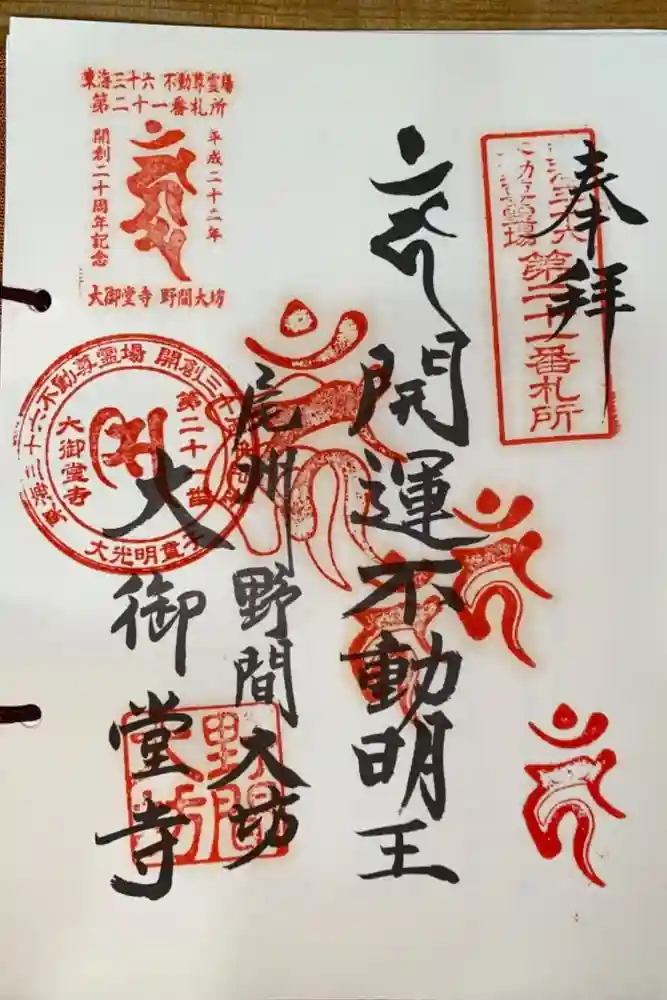 奉拝
東海三十六
不動尊霊場
第二十一番札所
開運不動明王
尾州野間大坊
大御堂寺
東海三十六不動尊霊場
第二十一番札所
平成二十二年
開創二十周年記念
大御堂寺 野間大坊
東海三十六不動尊霊場 開創三十
第二十一番
大御堂寺
野間
大坊